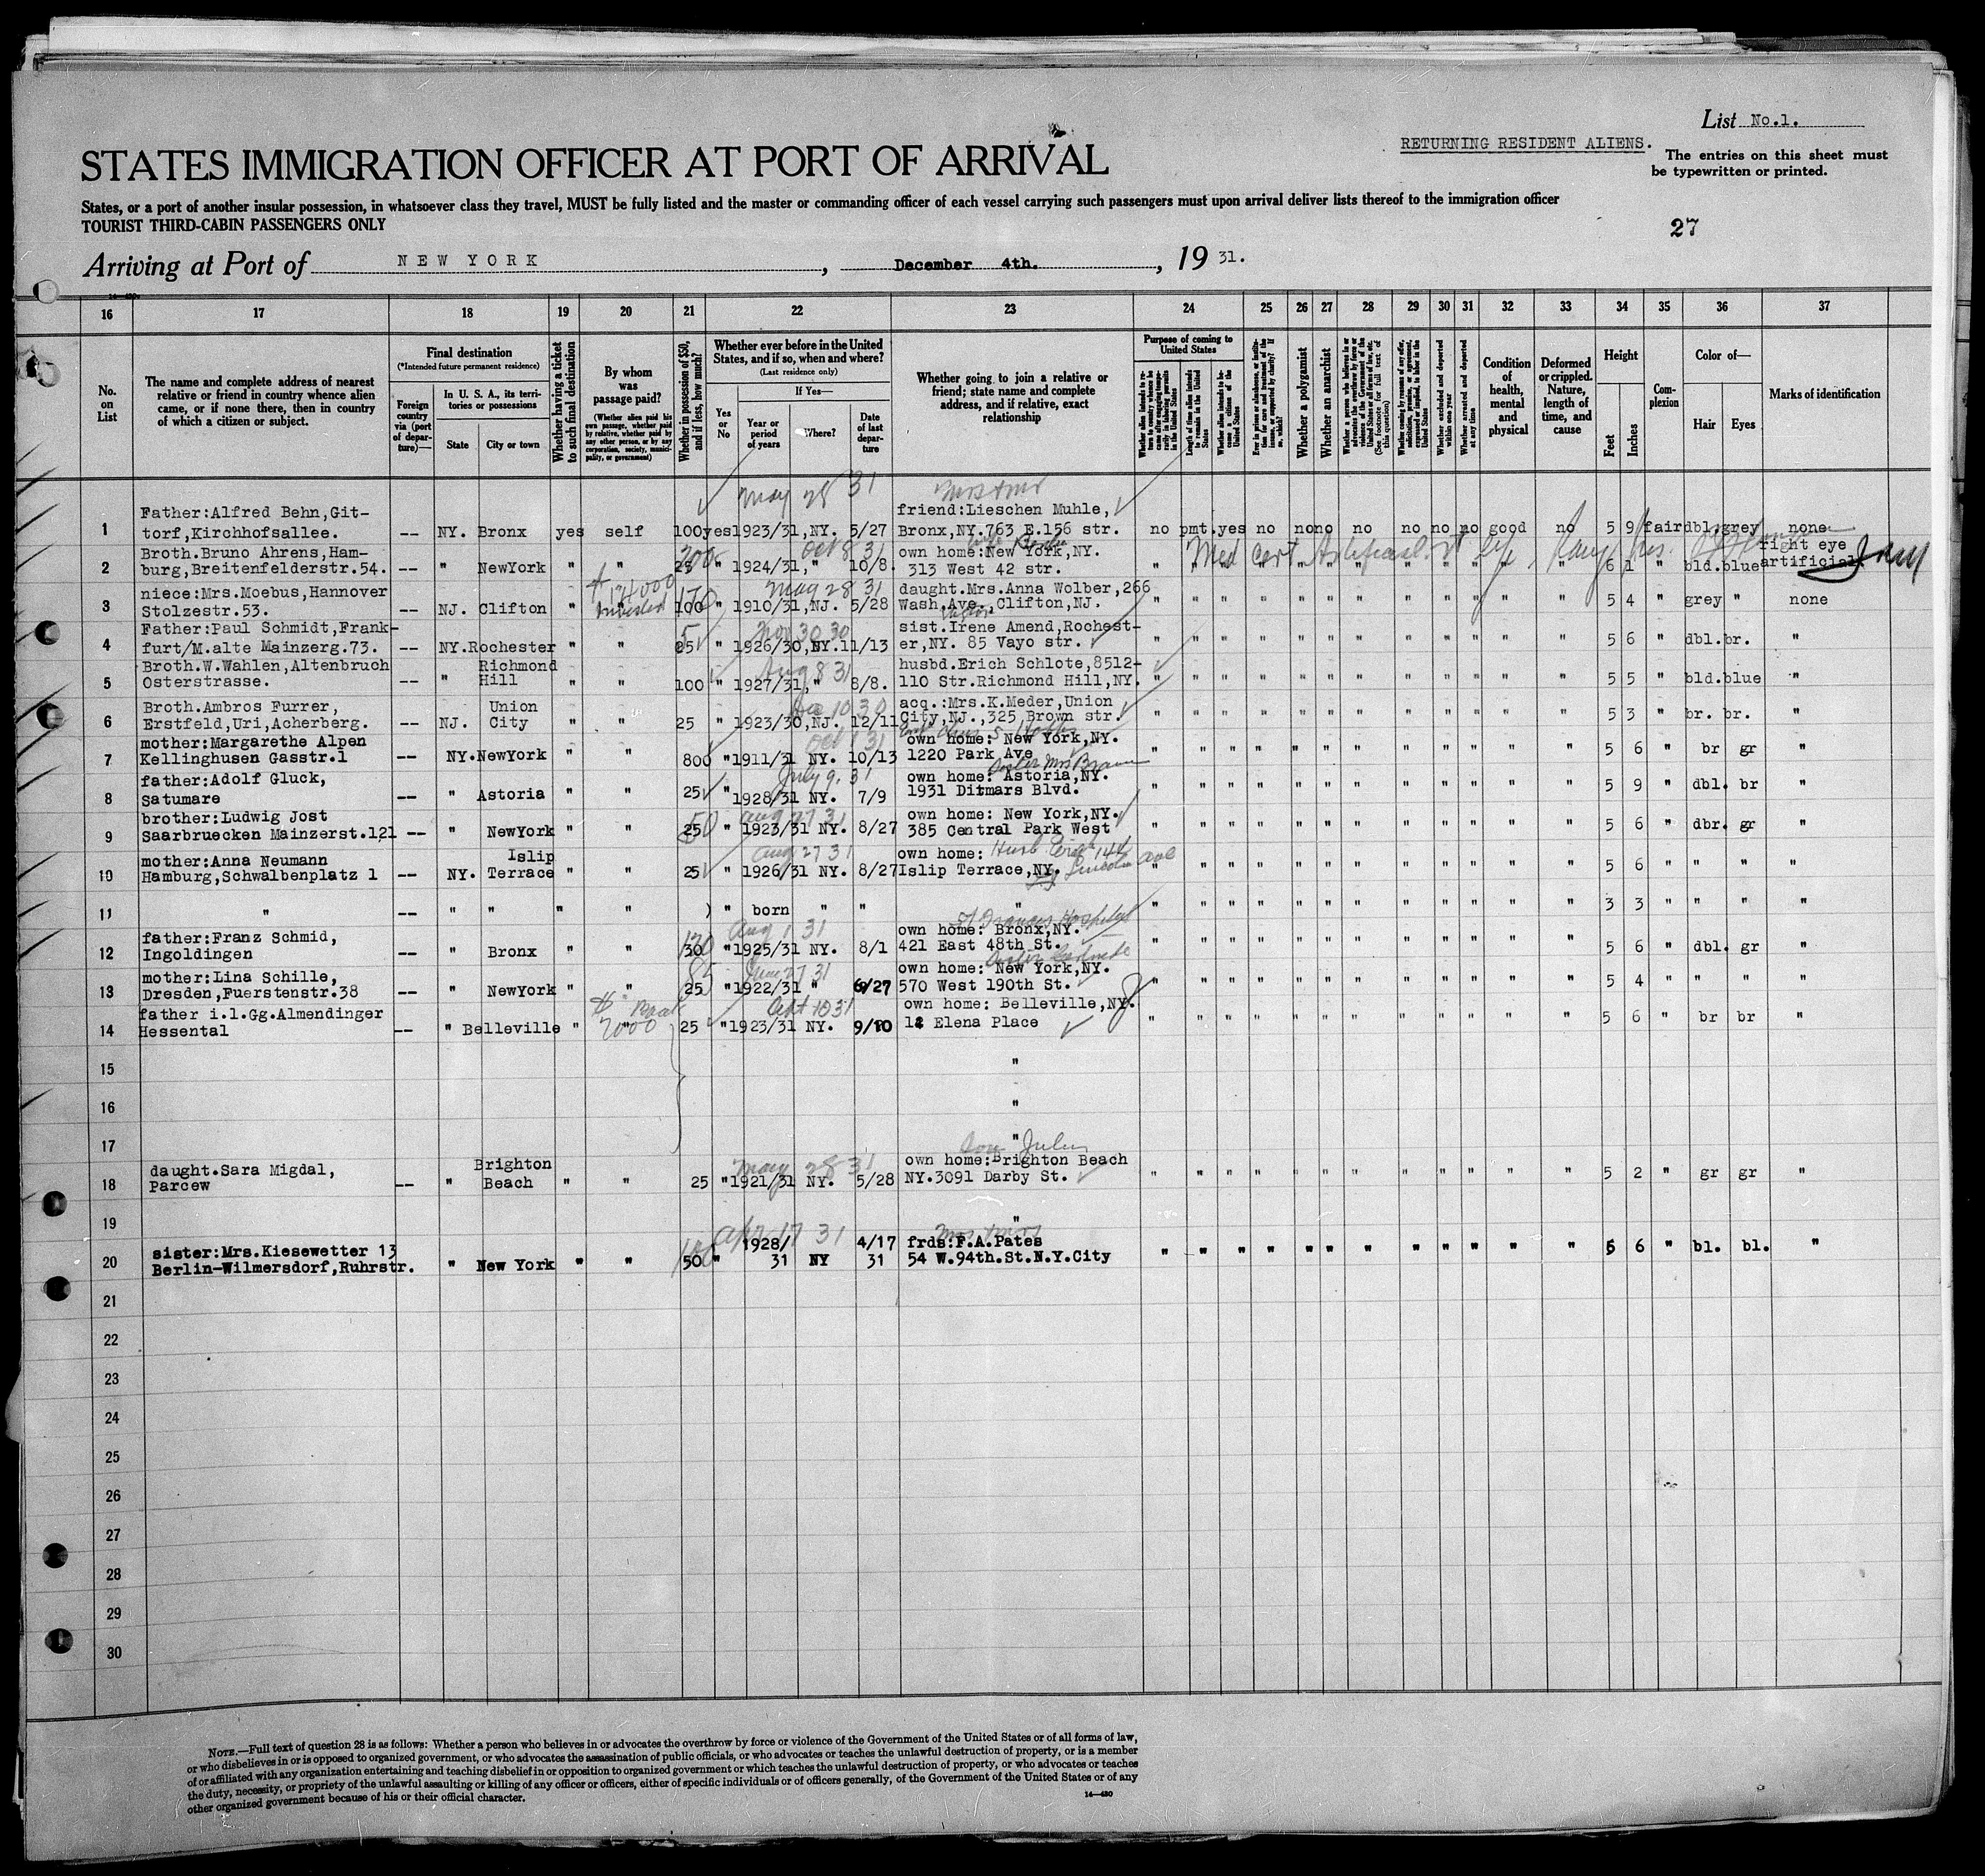 List No.1.
RETURNING RESIDENT ALIENS.
The entries on this sheet must
be typewritten or printed.
STATES IMMIGRATION OFFICER AT PORT OF ARRIVAL
States, or a port of another insular possession, in whatsoever class they travel, MUST be fully listed and the master or commanding officer of each vessel carrying such passengers must upon arrival deliver lists thereof to the immigration officer
TOURIST THIRD-CABIN PASSENGERS ONLY
27
Arriving at Port of NEW YORK, December 4th., 1931.
16 17 18 19 20 21 22 23 24 25 26 27 28 29 30 31 32 33 34 35 36 37
No. on List
The name and complete address of nearest
relative or friend in country whence alien
came, or if none there, then in country
of which a citizen or subject.
Final destination
(*Intended future permanent residence)
Foreign country via (port of departure)—
In U. S. A., its territories or possessions
State
City or town
Whether having a ticket to such final destination
By whom was passage paid?
(Whether alien paid his own passage, whether paid by relative, whether paid by any other person, or by any corporation, society, municipality, or government)
Whether in possession of $50, and if less, how much?
Whether ever before in the United
States, and if so, when and where?
(Last residence only)
Yes or No
If Yes—
Year or period of years
Where?
Date of last departure
Whether going to join a relative or
friend; state name and complete
address, and if relative, exact
relationship
Purpose of coming to United States
Length of time alien intends to remain in the United States
Whether alien intends to become a citizen of the United States
Whether a polygamist
Whether an anarchist
Whether excluded and deported within one year
Whether arrested and deported at any time
Condition of health, mental and physical
Deformed or crippled. Nature, length of time, and cause
Height
Feet
Inches
Complexion
Color of—
Hair
Eyes
Marks of identification
May 28 31
1 Father:Alfred Behn,Git-
torf,Kirchhofsallee. -- NY. Bronx yes self 100 yes 1923/31,NY. 5/27 friend:Lieschen Muhle,
Bronx,NY.763 E.156 str. no pmt. yes no no no no no no no good no 5 9 fair dbl. grey none
Oct 8 31
200
Med Cert Artificial
2 Broth.Bruno Ahrens,Ham-
burg,Breitenfelderstr.54. -- " NewYork " " 25 " 1924/31," 10/8. own home:New York,NY.
313 West 42 str. " " " " " " " " " " " " 6 1 " bld. blue right eye
artificial
May 28 31
3 niece:Mrs.Moebus,Hannover
Stolzestr.53. -- NJ. Clifton " " 100 " 1910/31,NJ. 5/28 daught.Mrs.Anna Wolber,266
Wash.Ave.,Clifton,NJ. " " " " " " " " " " " " 5 4 " grey " none
Nov 30 30
4 Father:Paul Schmidt,Frank-
furt/M.alte Mainzerg.73. -- NY. Rochester " " 25 " 1926/30,NY. 11/13 sist.Irene Amend,Rochest-
er,NY. 85 Vayo str. " " " " " " " " " " " " 5 6 " dbl. br. "
Aug 8 31
5 Broth.W.Wahlen,Altenbruch
Osterstrasse. -- " Richmond
Hill " " 100 " 1927/31," 8/8. husbd.Erich Schlote,8512-
110 Str.Richmond Hill,NY. " " " " " " " " " " " " 5 5 " bld. blue "
Dec 10 30
6 Broth.Ambros Furrer,
Erstfeld,Uri,Acherberg. -- NJ. Union
City " " 25 " 1923/30,NJ. 12/11 acq.:Mrs.K.Meder,Union
City,NJ.,325 Brown str. " " " " " " " " " " " " 5 3 " br. br. "
7 mother:Margarethe Alpen
Kellinghusen Gasstr.1 -- NY. NewYork " " 800 " 1911/31 NY. 10/13 own home: New York,NY.
1220 Park Ave " " " " " " " " " " " " 5 6 " br gr "
July 9, 31
8 father:Adolf Gluck,
Satumare -- " Astoria " " 25 " 1928/31 NY. 7/9 own home: Astoria,NY.
1931 Ditmars Blvd. " " " " " " " " " " " " 5 9 " dbl. br "
Aug 27 31
9 brother:Ludwig Jost
Saarbruecken Mainzerst.121 -- " NewYork " " 25 " 1923/31 NY. 8/27 own home: New York,NY.
385 Central Park West " " " " " " " " " " " " 5 6 " dbr. gr "
Aug 27 31
10 mother:Anna Neumann
Hamburg,Schwalbenplatz 1 -- NY. Islip
Terrace " " 25 " 1926/31 NY. 8/27 own home:
Islip Terrace,NY. Lincoln Ave " " " " " " " " " " " " 5 6 " " " "
11 " -- " " " " ) " born " " " " " " " " " " " " " " " 3 3 " " " "
Aug 1 31 St Francis Hospital
12 father:Franz Schmid,
Ingoldingen -- " Bronx " " 30 " 1925/31 NY. 8/1 own home: Bronx,NY.
421 East 48th St. " " " " " " " " " " " " 5 6 " dbl. gr "
June 27 31
13 mother:Lina Schille,
Dresden,Fuerstenstr.38 -- " NewYork " " 25 " 1922/31 " 6/27 own home: New York,NY.
570 West 190th St. " " " " " " " " " " " " 5 4 " " " "
14 father i.l.Gg.Almendinger
Hessental -- " Belleville " " 25 " 1923/31 NY. 9/10 own home: Belleville,NY.
Elena Place " " " " " " " " " " " " 5 6 " br br "
15 "
16 "
17 "
May 28 31
18 daught.Sara Migdal,
Parcew -- " Brighton
Beach " " 25 " 1921/31 NY. 5/28 own home:Brighton Beach
NY.3091 Darby St. " " " " " " " " " " " " 5 2 " gr gr "
19 "
Apr 17 31
20 sister:Mrs.Kiesewetter 13
Berlin-Wilmersdorf,Ruhrstr. " New York " " 50 " 1928/
31 NY 4/17
31 frds:F.A.Pates
54 W.94th.St.N.Y.City " " " " " " " " " " " " 5 6 " bl. bl. "
21
22
23
24
25
26
27
28
29
30
NOTE.—Full text of question 28 is as follows: Whether a person who believes in or advocates the overthrow by force or violence of the Government of the United States or of all forms of law,
or who disbelieves in or is opposed to organized government, or who advocates the assassination of public officials, or who advocates or teaches the unlawful destruction of property, or is a member
of or affiliated with any organization entertaining and teaching disbelief in or opposition to organized government or which teaches the unlawful destruction of property, or who advocates or teaches
the duty, necessity, or propriety of the unlawful assaulting or killing of any officer or officers, either of specific individuals or of officers generally, of the Government of the United States or of any
other organized government because of his or their official character.
14—430